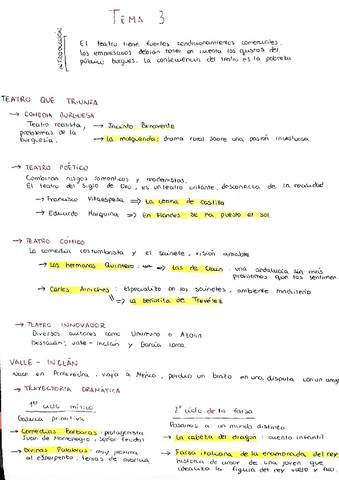 TEMA 3
INTRODUCCIÓN
El teatro tiene fuertes condicionamientos comerciales,
los empresarios debían tener en cuenta los gustos del
público burgués. La consecuencia del teatro es la pobreza
TEATRO QUE TRIUNFA
→ COMEDIA BURGUESA
Teatro realista, → Jacinto Benavente
problemas de la
burguesía. → La malquerida: drama rural sobre una pasión incestuosa.
→ TEATRO POÉTICO
Combinan rasgos románticos y modernistas.
El teatro del Siglo de Oro, es un teatro brillante, desconectado de la realidad
→ Francisco Villaespesa ⇒ La leona de Castilla
→ Eduardo Marquina ⇒ En Flandes se ha puesto el sol
→ TEATRO CÓMICO
La comedia costumbrista y el sainete, visión amable
→ Los hermanos Quintero: ⇒ Las de Caín: una andalucía sin más
problemas que los sentimen.
→ Carlos Arniches: especialista en los sainetes, ambiente madrileño
⇒ La señorita de Trevélez
→ TEATRO INNOVADOR
Diversos autores como Unamuno o Azorín
Destacan: Valle-Inclán y García Lorca.
VALLE-INCLÁN
Nace en Pontevedra, viaja a Méjico, perdió un brazo en una disputa con un amigo
→ TRAYECTORIA DRAMÁTICA
1er ciclo mítico
Galicia primitiva
→ Comedias Bárbaras: protagonista
Juan de Montenegro, señor feudal
→ Divinas Palabras: muy próxima
al esperpento, temas de avaricia
2º ciclo de la farsa
Pasamos a un mundo distinto
→ La cabeza del dragón: cuento infantil
→ Farsa italiana de la enamorada del rey:
historia de amor de una joven que
idealiza la figura del rey viejo y feo.